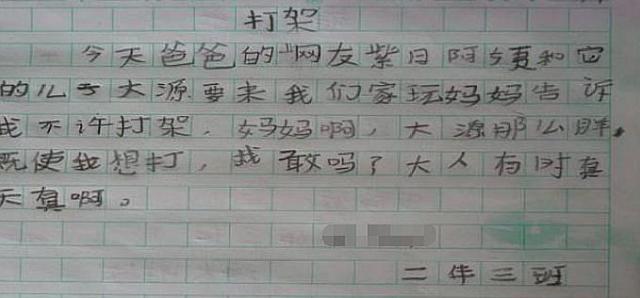 打架
今天爸爸的"网友紫日阿姨和它
的儿子大源要来我们家玩妈妈告诉
我不许打架，妈妈啊，大源那么胖，
既使我想打，我敢吗？大人有时真
天真啊。
二年三班